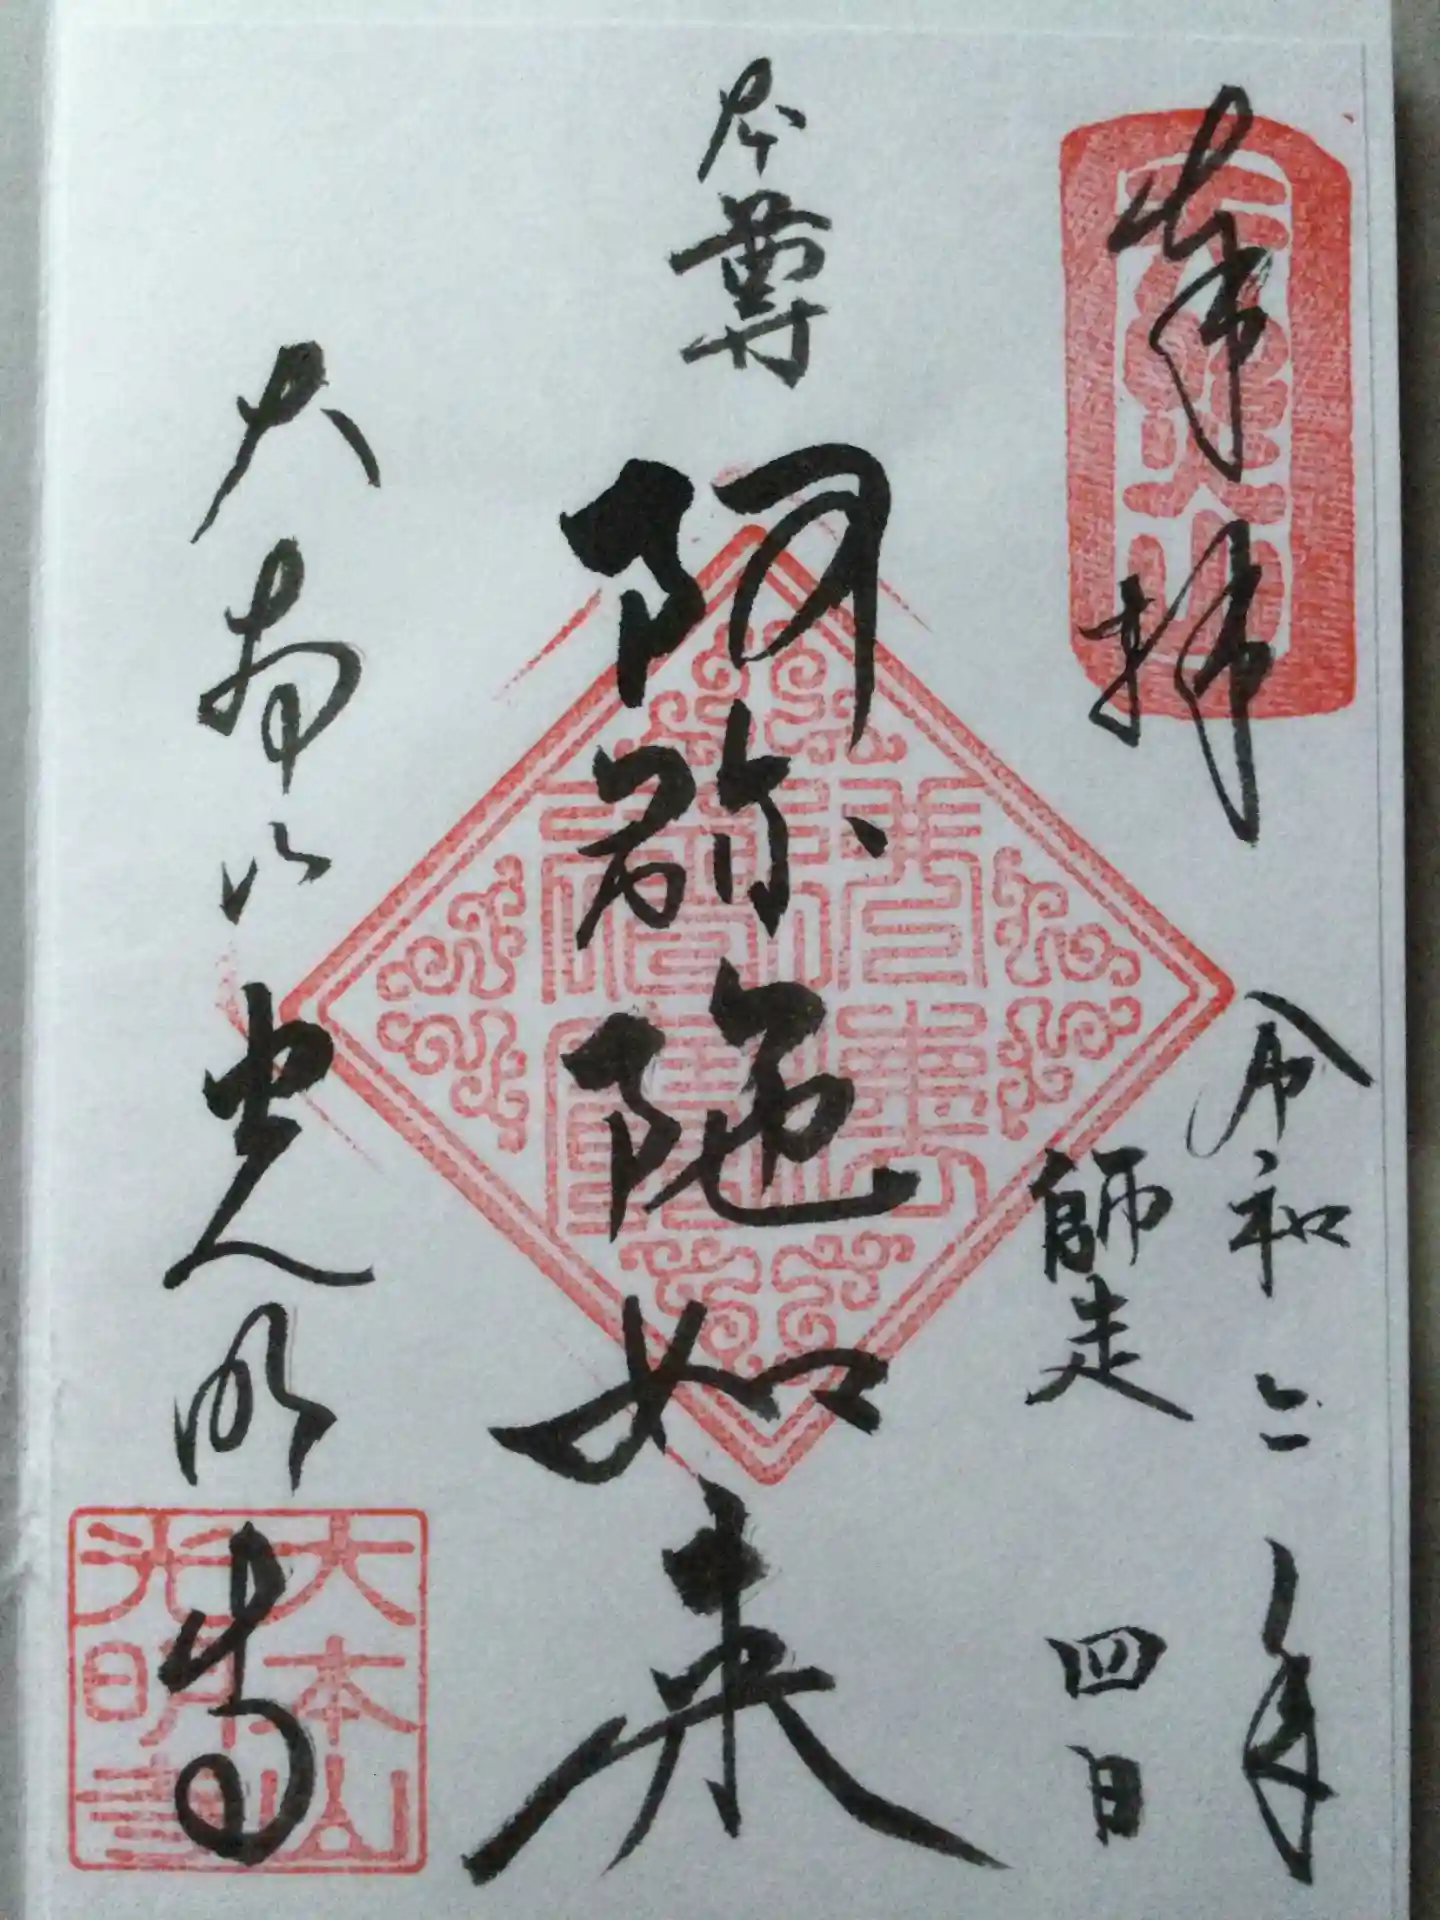 奉拝
令和二年
師走 四日
本尊
阿弥陀如来
大本山 光明寺
大本山
光明寺